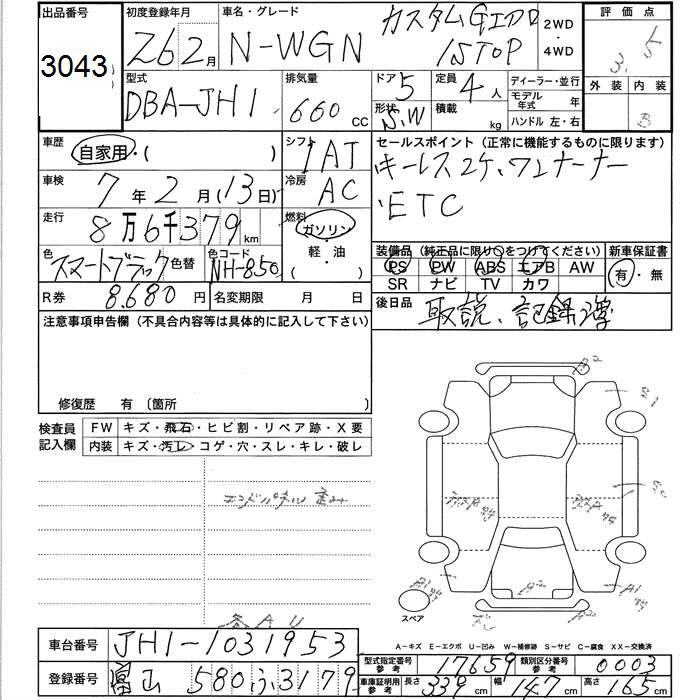 出品番号 初度登録年月 車名・グレード 評価点
3043 26 2月 N-WGN カスタムG 1STOP 2WD・4WD 3.5
型式 排気量 ドア 定員 ディーラー・並行 外装 内装
DBA-JH1 660cc 5 4人 モデル年式 年 B
形状 S.W 積載 kg ハンドル 左・右
車歴 シフト セールスポイント (正常に機能するものに限ります)
自家用・( ) IAT キーレス2ケ、ワンオーナー
車検 冷房
7年2月(13日) AC ETC
走行 燃料
8万6千379km ガソリン・軽・油・( )
装備品 (純正品に限り○をつけてください) 新車保証書
色 色替 色コード PS PW ABS エアB AW 有・無
スマートブラック NH-850 SR ナビ TV カワ
R券 8,680円 名変期限 月 日 後日品 取説、記録簿
注意事項申告欄 (不具合内容等は具体的に記入して下さい)
修復歴 有 〔箇所 〕
検査員記入欄 FW キズ・飛石・ヒビ割・リペア跡・X要
内装 キズ・汚レ・コゲ・穴・スレ・キレ・破レ
スペア
A-キズ E-エクボ U-凹み W-補修跡 S-サビ C-腐食 XX-交換済
車台番号 JH1-1031953
型式指定番号参考 17659 類別区分番号参考 0003
登録番号 富山 580 ふ3179
車庫証明用参考 長さ 339cm 幅 147cm 高さ 165cm